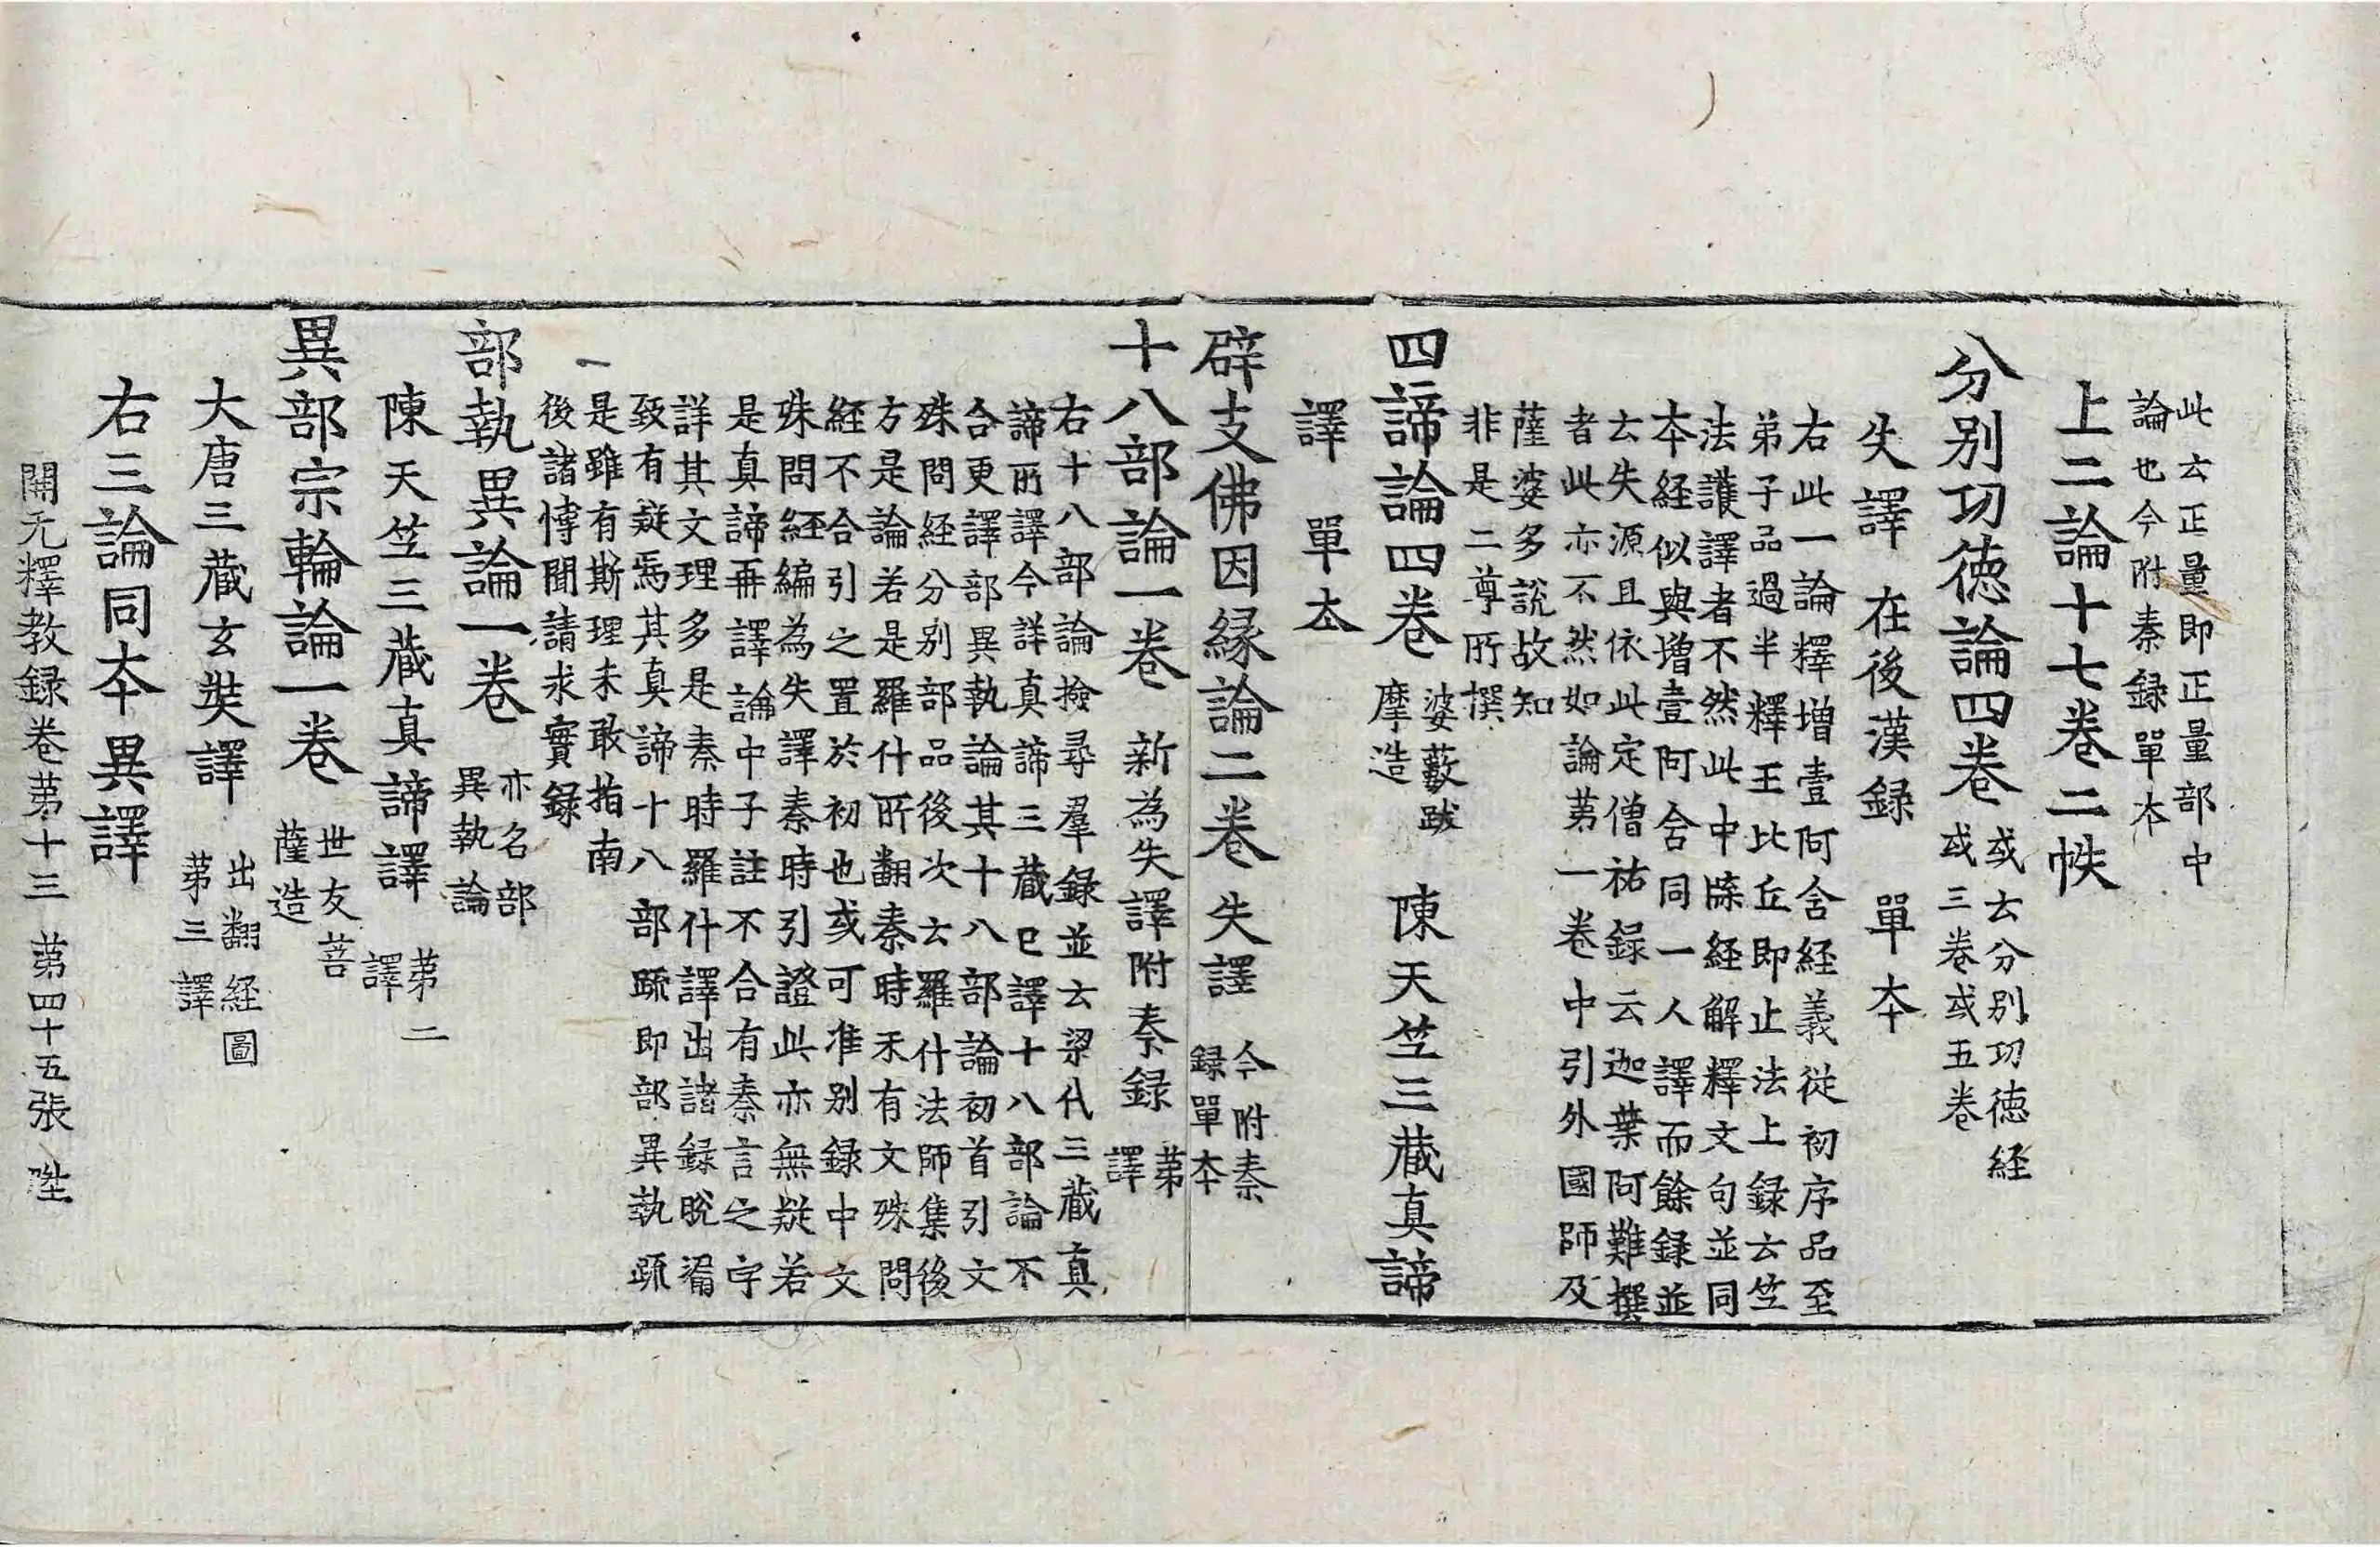 此云正量即正量部中
論也今附秦録單本
上二論十七卷二帙
分別功徳論四卷 或云分別功徳経
或三卷或五卷
失譯 在後漢録 單本
右此一論釋增壹阿含経義從初序品至
弟子品過半釋王比丘即止法上録云竺
法護譯者不然此中牒経解釋文句並同
本経似與增壹阿含同一人譯而餘録並
云失源且依此定僧祐録云迦葉阿難撰
者此亦不然如論苐一卷中引外國師及
薩婆多說故知
非是二尊所撰
四諦論四卷 婆藪跋
摩造 陳天竺三藏真諦
譯 單本
辟支佛因緣論二卷 失譯 今附秦
録單本
十八部論一卷 新為失譯附秦録 苐
譯
右十八部論撿尋羣録並云梁代三藏真
諦所譯今詳真諦三藏已譯十八部論不
合更譯部異執論其十八部論初首引文
殊問経分別部品後次云羅什法師集後
方是論若是羅什所翻秦時未有文殊問
経不合引之置於初也或可准別録中文
殊問経編為失譯秦時引證此亦無疑若
是真諦再譯論中子註不合有秦言之字
詳其文理多是秦時羅什譯出諸録脫漏
致有疑焉其真諦十八部䟽即部異執䟽
是雖有斯理未敢指南
後諸博聞請求實録
部執異論一卷 亦名部
異執論
陳天竺三藏真諦譯 苐二
譯
異部宗輪論一卷 世友菩
薩造
大唐三藏玄奘譯 出翻経圖
苐三譯
右三論同本異譯
開元釋教録卷苐十三 苐四十五張 陞